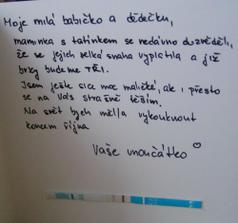 Moje milá babičko a dědečku,
maminka s tatínkem se nedávno dozvěděli,
že se jejich velká snaha vyplatila a již
brzy budeme TŘI.
Jsem ještě sice moc maličké, ale i přesto
se na Vás strašně těším.
Na svět bych měl/a vykouknout
koncem října
Vaše vnoučátko